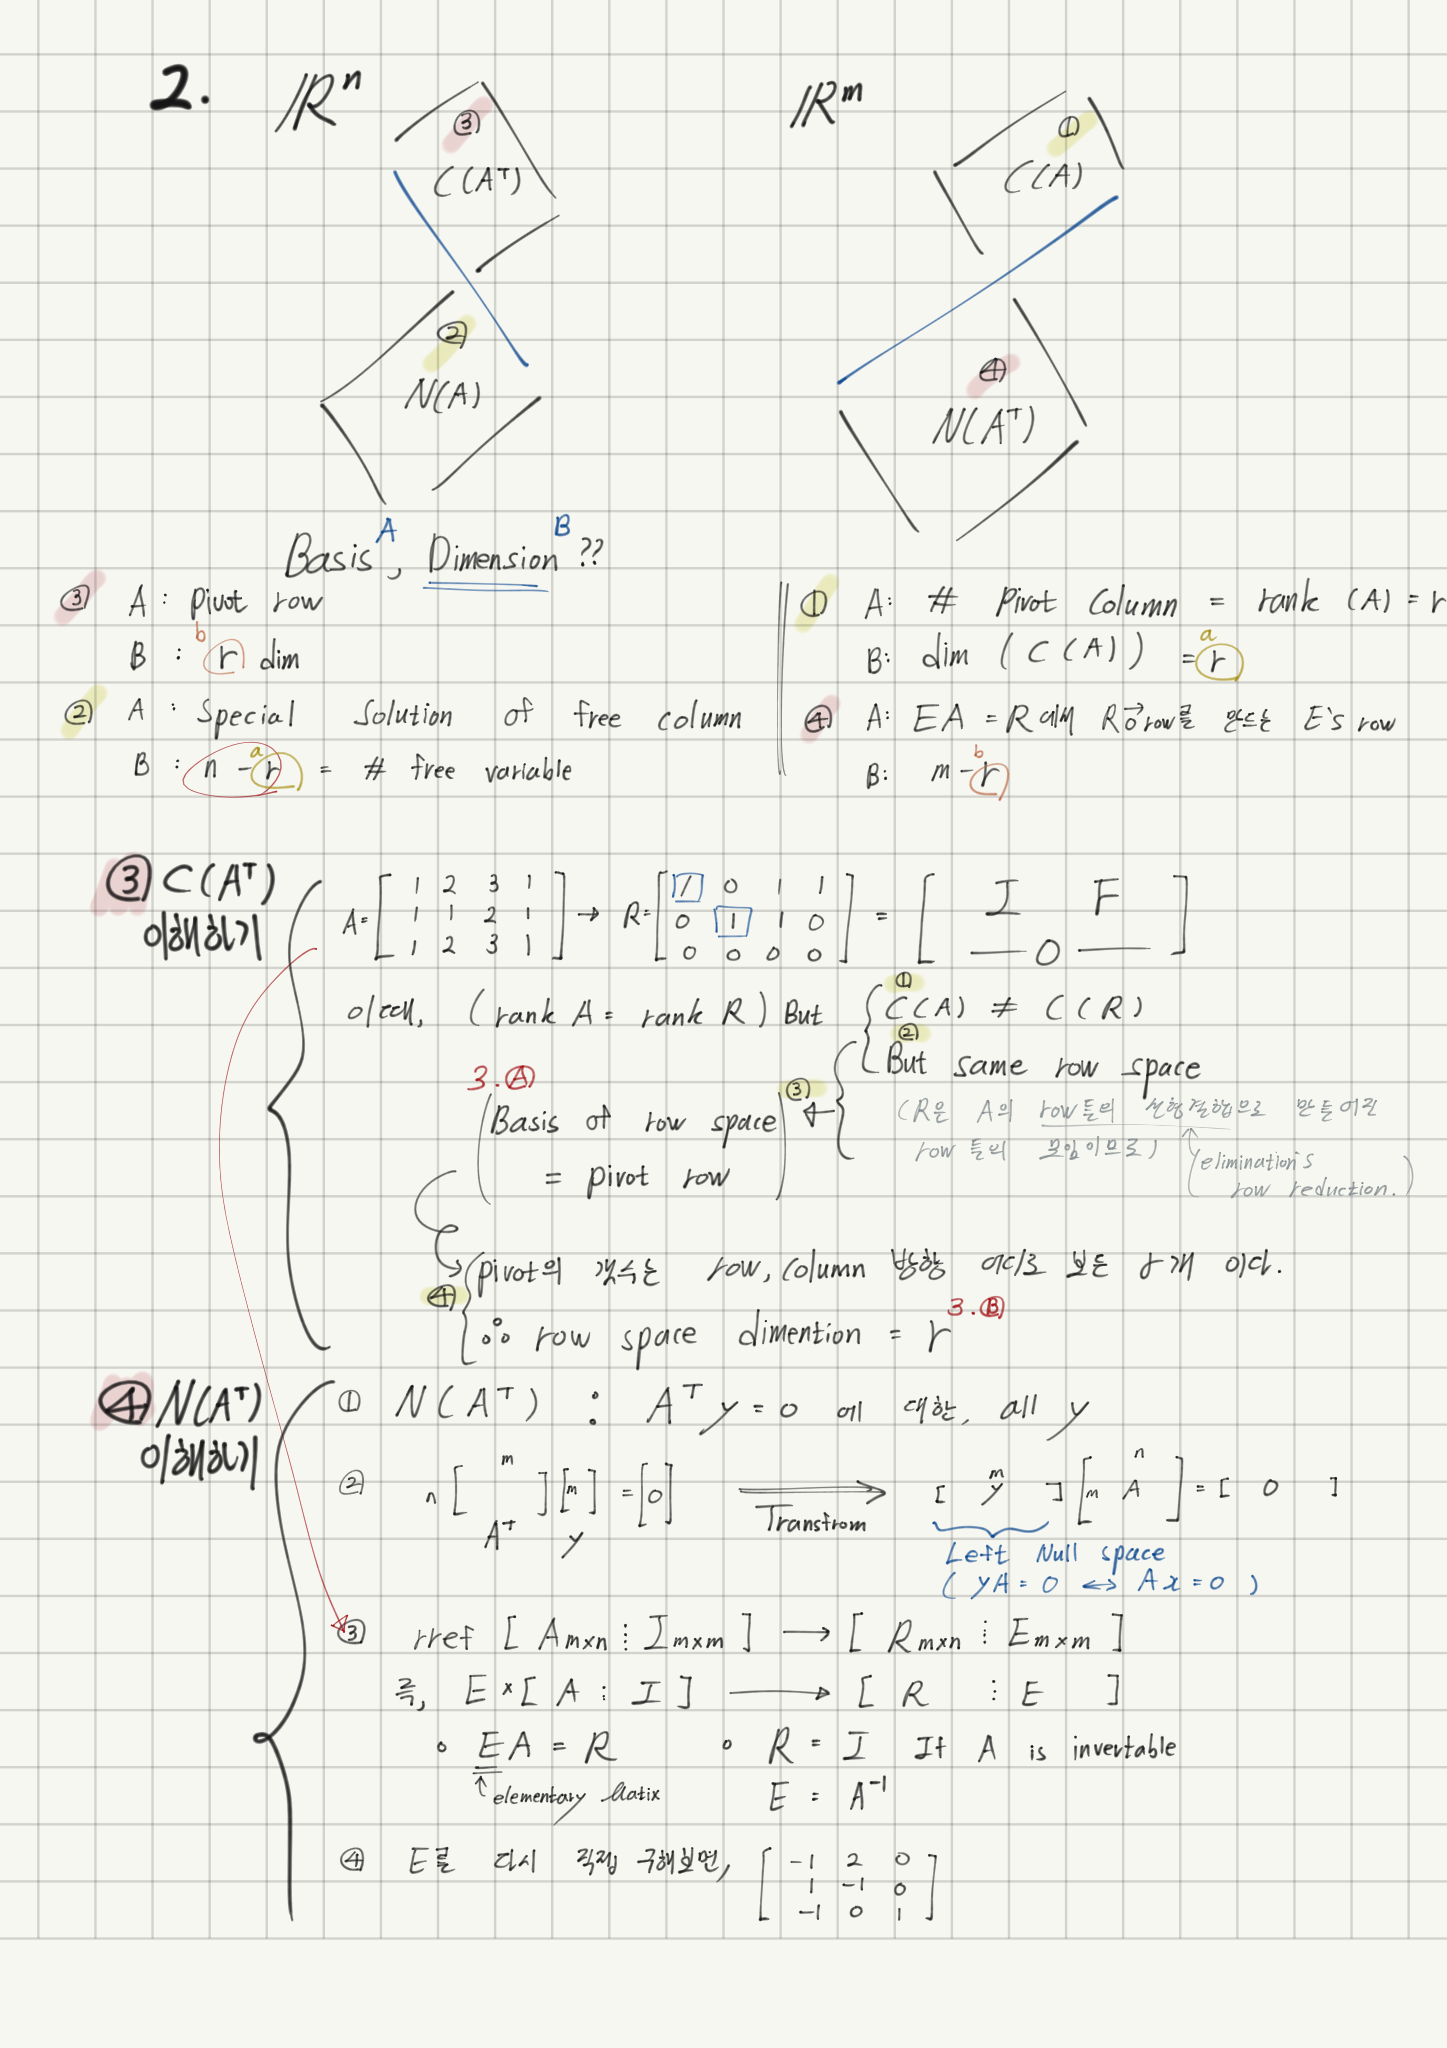 2. ℝⁿ ℝᵐ
③ C(Aᵀ)
① C(A)
② N(A)
④ N(Aᵀ)
Basis A, Dimension B ??
③ A : pivot row
B : r b dim
② A : Special solution of free column
B : n - r a = # free variable
① A: # Pivot Column = rank (A) = r
B: dim (C(A)) = r a
④ A: EA = R에서 R 0→ row를 만드는 E's row
B: m - r b
③ C(Aᵀ) 이해하기
A = [ 1 2 3 1 → R = [ 1 0 1 1 = [ I F
1 1 2 1 0 1 1 0
1 2 3 1 ] 0 0 0 0 ] — 0 — ]
이때, (rank A = rank R) But ① C(A) ≠ C(R)
② But same row space
(R은 A의 row들의 선형결합으로 만들어진
row 들의 모임이므로)
(elimination's
row reduction.)
3.Ⓐ
③ ← (Basis of row space
= pivot row)
pivot의 갯수는 row, column 방향 어디로 보든 r개 이다.
④ ∴ row space dimention = r 3.Ⓑ
④ N(Aᵀ) 이해하기
① N(Aᵀ) : Aᵀy = 0 에 대한, all y
② n [ m ] [ m ] = [ 0 ] ⇒ [ m y ] [ m A n ] = [ 0 ]
Aᵀ y Transfrom
Left Null space
( yA = 0 ↔ Ax = 0 )
③ rref [ Am×n ⋮ Im×m ] → [ Rm×n ⋮ Em×m ]
즉, E × [ A ⋮ I ] → [ R ⋮ E ]
∘ EA = R ∘ R = I If A is invertable
↑ elementary Matix E = A⁻¹
④ E를 다시 직접 구해보면, [ -1 2 0
1 -1 0
-1 0 1 ]